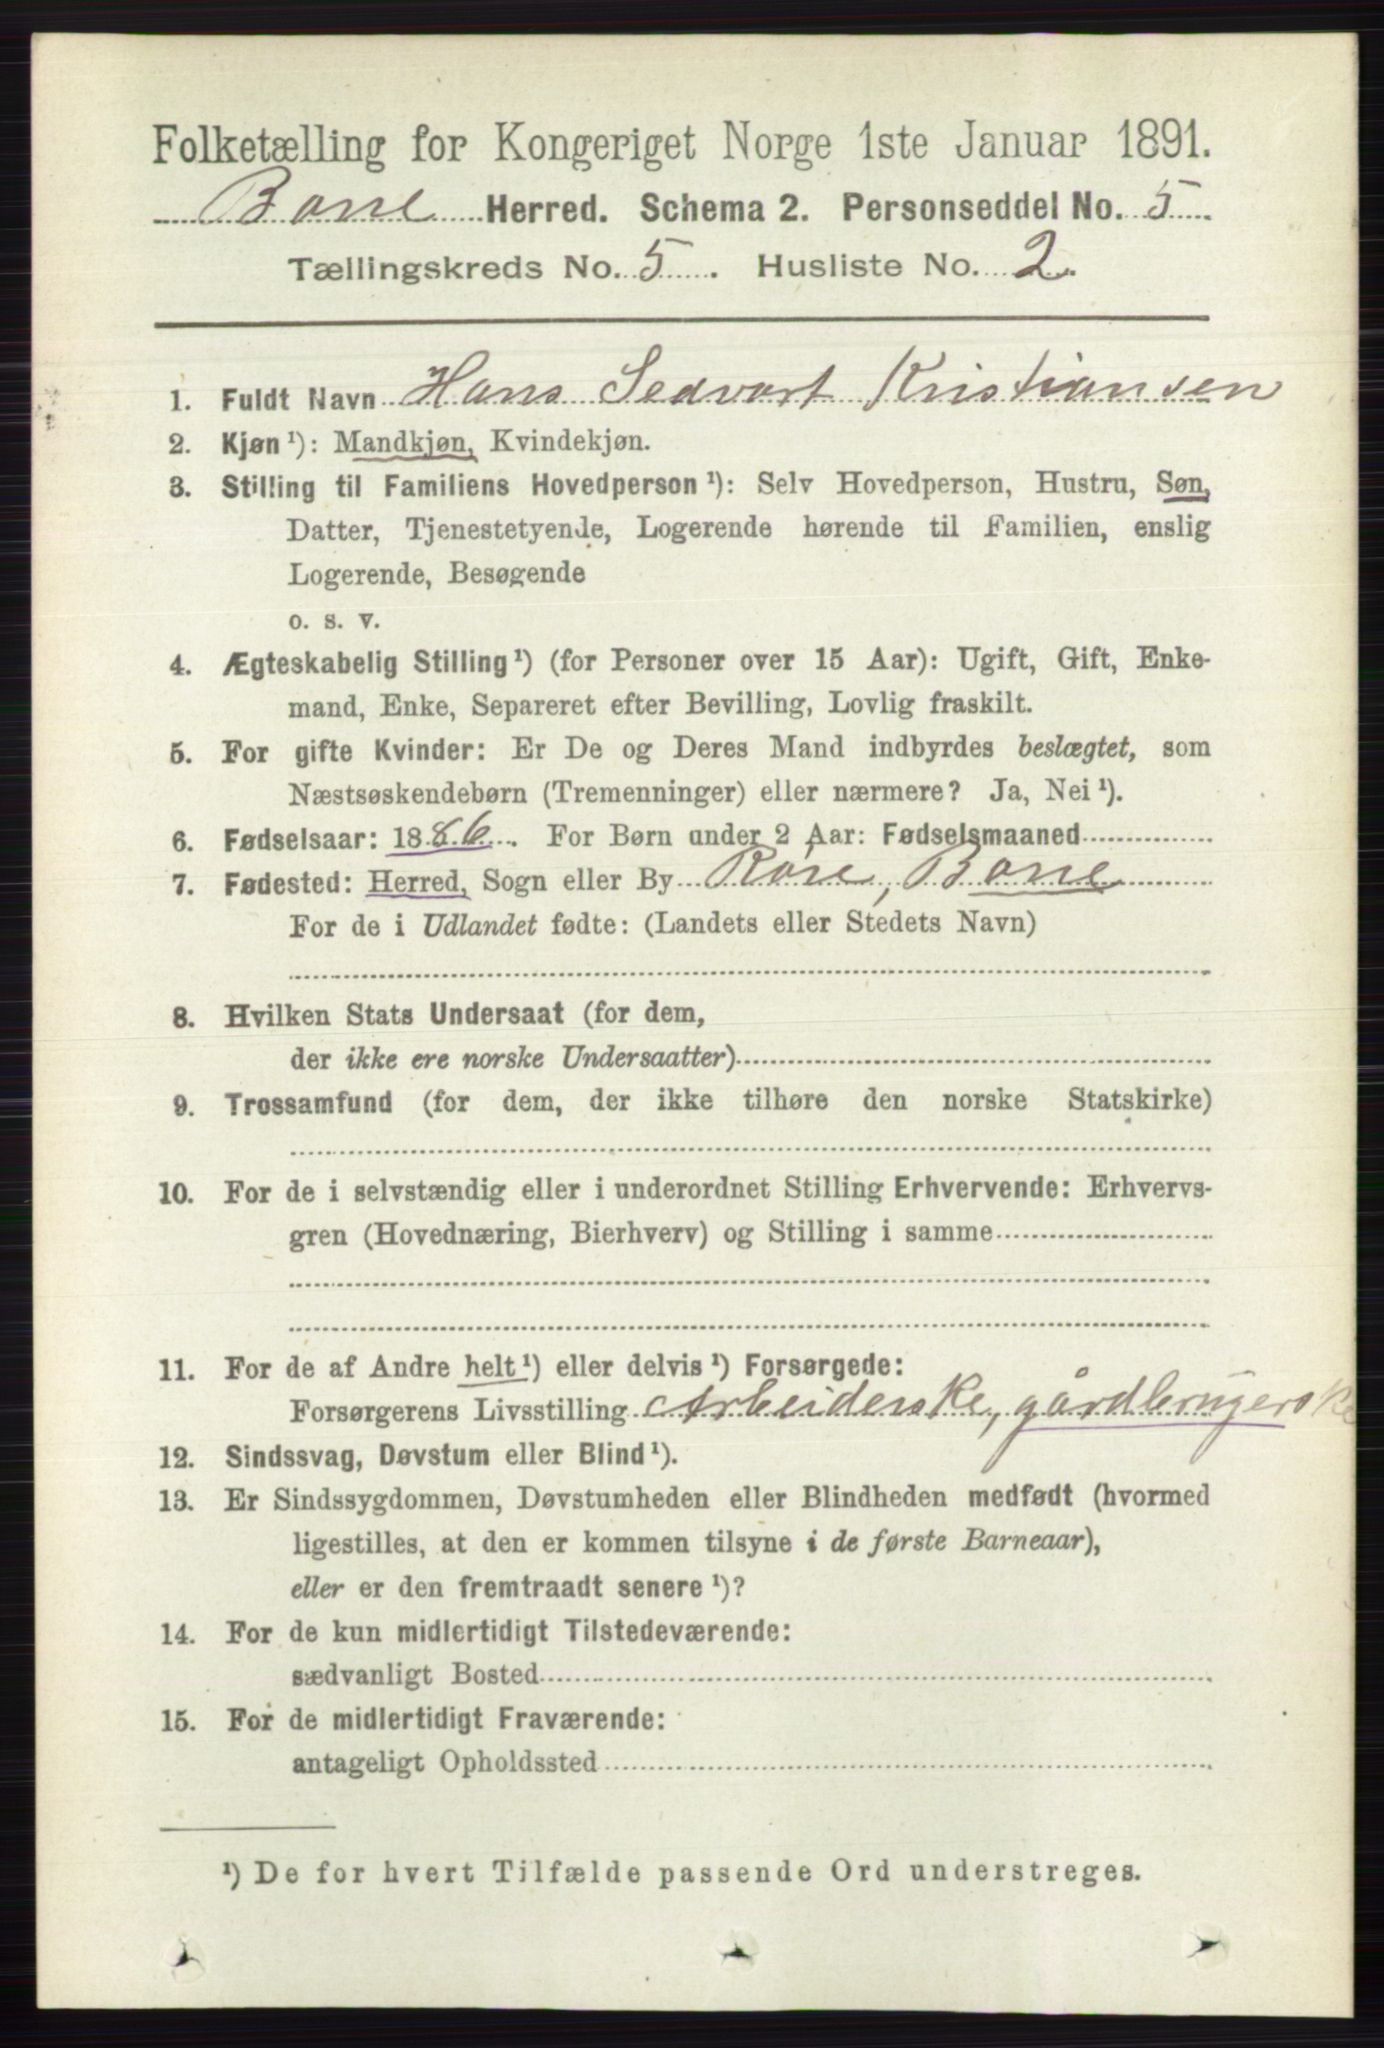 Folketælling for Kongeriget Norge 1ste Januar 1891.
Borre Herred. Schema 2. Personseddel No. 5
Tællingskreds No. 5. Husliste No. 2.
1. Fuldt Navn Hans Sedvart Kristiansen
2. Kjøn ¹): Mandkjøn, Kvindekjøn.
3. Stilling til Familiens Hovedperson ¹): Selv Hovedperson, Hustru, Søn,
Datter, Tjenestetyende, Logerende hørende til Familien, enslig
Logerende, Besøgende
o. s. v.
4. Ægteskabelig Stilling ¹) (for Personer over 15 Aar): Ugift, Gift, Enke-
mand, Enke, Separeret efter Bevilling, Lovlig fraskilt.
5. For gifte Kvinder: Er De og Deres Mand indbyrdes beslægtet, som
Næstsøskendebørn (Tremenninger) eller nærmere? Ja, Nei ¹).
6. Fødselsaar: 1886. For Børn under 2 Aar: Fødselsmaaned
7. Fødested: Herred, Sogn eller By Røre, Borre
For de i Udlandet fødte: (Landets eller Stedets Navn)
8. Hvilken Stats Undersaat (for dem,
der ikke ere norske Undersaatter)
9. Trossamfund (for dem, der ikke tilhøre den norske Statskirke)
10. For de i selvstændig eller i underordnet Stilling Erhvervende: Erhvervs-
gren (Hovednæring, Bierhverv) og Stilling i samme
11. For de af Andre helt ¹) eller delvis ¹) Forsørgede:
Forsørgerens Livsstilling Arbeiderske, gårdbrugerske
12. Sindssvag, Døvstum eller Blind ¹).
13. Er Sindssygdommen, Døvstumheden eller Blindheden medfødt (hvormed
ligestilles, at den er kommen tilsyne i de første Barneaar),
eller er den fremtraadt senere ¹)?
14. For de kun midlertidigt Tilstedeværende:
sædvanligt Bosted
15. For de midlertidigt Fraværende:
antageligt Opholdssted
¹) De for hvert Tilfælde passende Ord understreges.